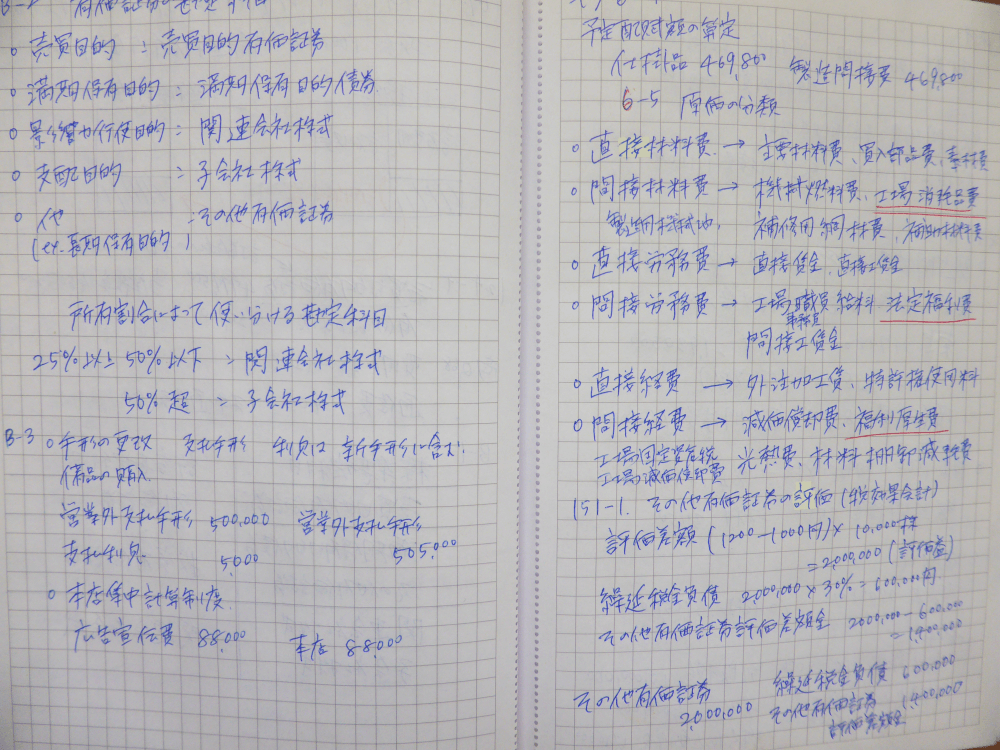 B-2 有価証券の
○ 売買目的 : 売買目的有価証券
○ 満期保有目的 : 満期保有目的債券
○ 影響力行使目的 : 関連会社株式
○ 支配目的 : 子会社株式
○ 他 : その他有価証券
(ex.長期保有目的)
所有割合によって使い分ける勘定科目
25%以上50%以下 : 関連会社株式
50%超 : 子会社株式
B-3 ○ 手形の更改 支払手形 利息は新手形に含む.
備品の購入
営業外支払手形 500,000 営業外支払手形 505,000
支払利息 5,000
○ 本店集中計算制度
広告宣伝費 88,000 本店 88,000
予定配賦額の算定
仕掛品 469,800 製造間接費 469,800
6-5 原価の分類
○ 直接材料費 → 主要材料費、買入部品費、素材費
○ 間接材料費 → 機械燃料費、工場消耗品費
製造用機械油, 補修用鋼材費, 補助材料費
○ 直接労務費 → 直接賃金、直接工賃金
○ 間接労務費 → 工場職員給料 法定福利費
事務員
間接工賃金
○ 直接経費 → 外注加工賃、特許権使用料
○ 間接経費 → 減価償却費、福利厚生費
工場固定資産税 光熱費、材料棚卸減耗費
工場減価償却費
151-1. その他有価証券の評価 (税効果会計)
評価差額 (1200-1000円) × 10,000株
= 2,000,000 (評価益)
繰延税金負債 2,000,000 × 30% = 600,000円
その他有価証券評価差額金 2,000,000 - 600,000
= 1,400,000
その他有価証券 2,000,000 繰延税金負債 600,000
その他有価証券 1,400,000
評価差額金